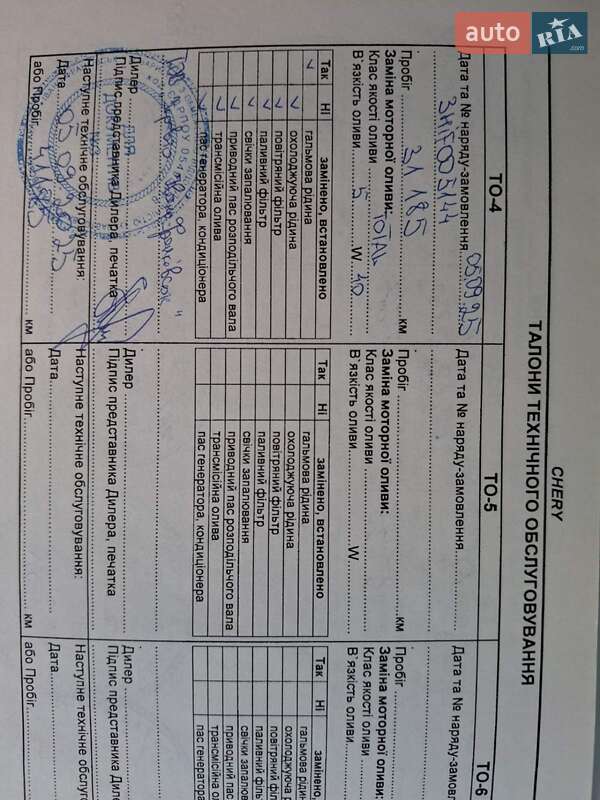 auto RIA .com
CHERY
ТАЛОНИ ТЕХНІЧНОГО ОБСЛУГОВУВАННЯ
ТО-4
Дата та № наряду-замовлення 050925
Пробіг 31 185 км
Заміна моторної оливи:
Клас якості оливи TOTAL
В`язкість оливи 5 W 40
Так Ні замінено, встановлено
гальмова рідина
охолоджуюча рідина
повітряний фільтр
паливний фільтр
свічки запалювання
приводний пас розподільчого вала
трансмісійна олива
пас генератора, кондиціонера
Дилер
Підпис представника Дилера, печатка
Наступне технічне обслуговування:
Дата
або Пробіг км
ТО-5
Дата та № наряду-замовлення
Пробіг км
Заміна моторної оливи:
Клас якості оливи
В`язкість оливи W
Так Ні замінено, встановлено
гальмова рідина
охолоджуюча рідина
повітряний фільтр
паливний фільтр
свічки запалювання
приводний пас розподільчого вала
трансмісійна олива
пас генератора, кондиціонера
Дилер
Підпис представника Дилера, печатка
Наступне технічне обслуговування:
Дата
або Пробіг км
ТО-6
Дата та № наряду-замов
Пробіг
Заміна моторної оливи:
Клас якості оливи
В`язкість оливи
Так Ні замінено,
гальмова рідина
охолоджуюча рідина
повітряний фільтр
паливний фільтр
свічки запалюва
приводний пас
трансмісійна о
пас генератора
Дилер
Підпис представника Диле
Наступне технічне обслуг
Дата
або Пробіг